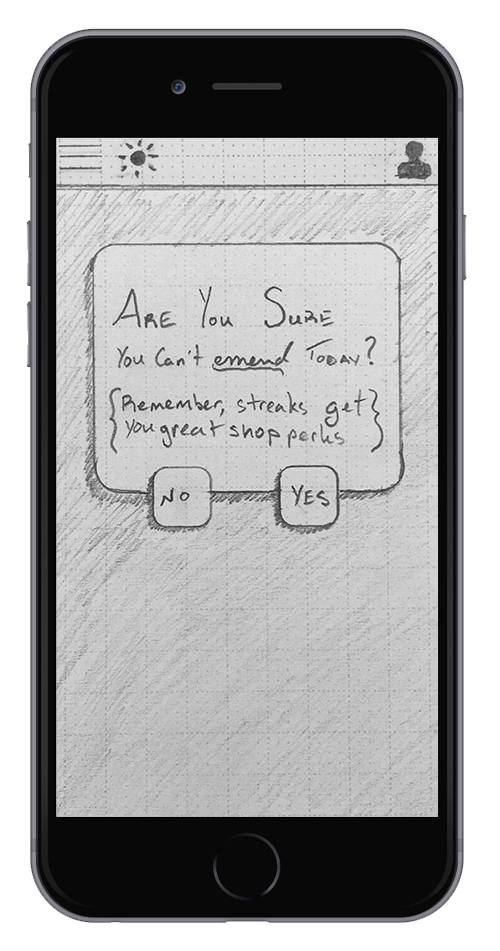 Are You Sure
You Can't emend Today?
{Remember, streaks get
you great shop perks}
NO
YES